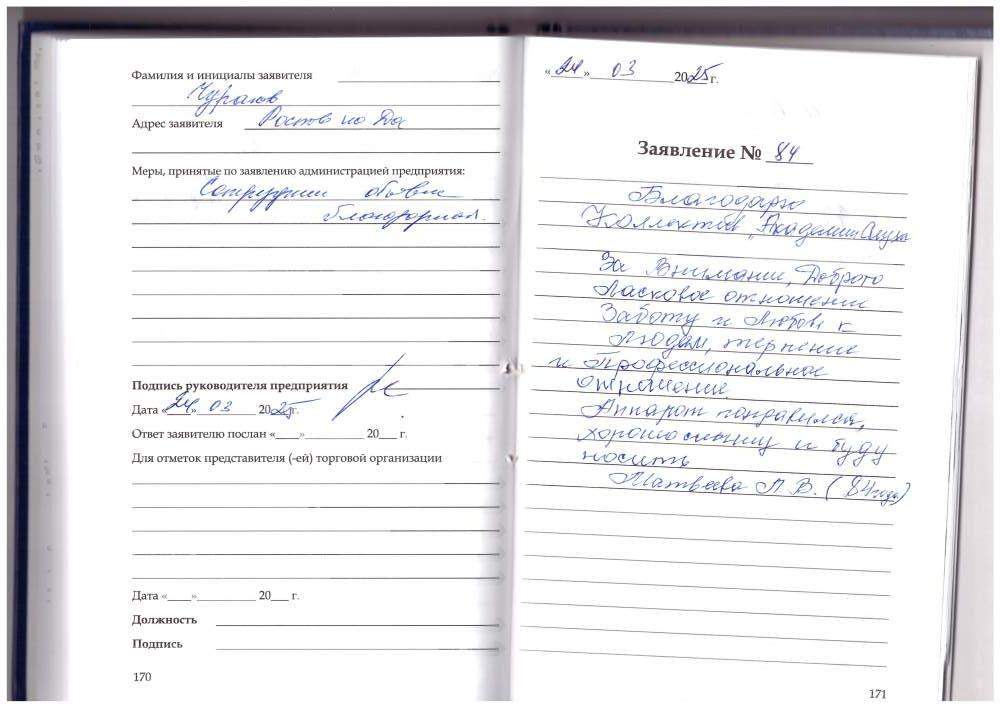 Фамилия и инициалы заявителя
Адрес заявителя Ростов на До
Меры, принятые по заявлению администрацией предприятия:
Подпись руководителя предприятия
Дата «24» 03 2025г.
Ответ заявителю послан «____»__________ 20___ г.
Для отметок представителя (-ей) торговой организации
Дата «____»__________ 20___ г.
Должность
Подпись
170
«24» 03 2025г.
Заявление № 84
Благодарю
Коллектив „Академии Слуха
За Внимании, Доброто
Ласковое отношении
Заботу и Любовь к
людям, терпение
и Профессиональное
отношение
Аппарат пондавился,
хорошо слышу и буду
носить
Матвеева Л. В. (84 года)
171